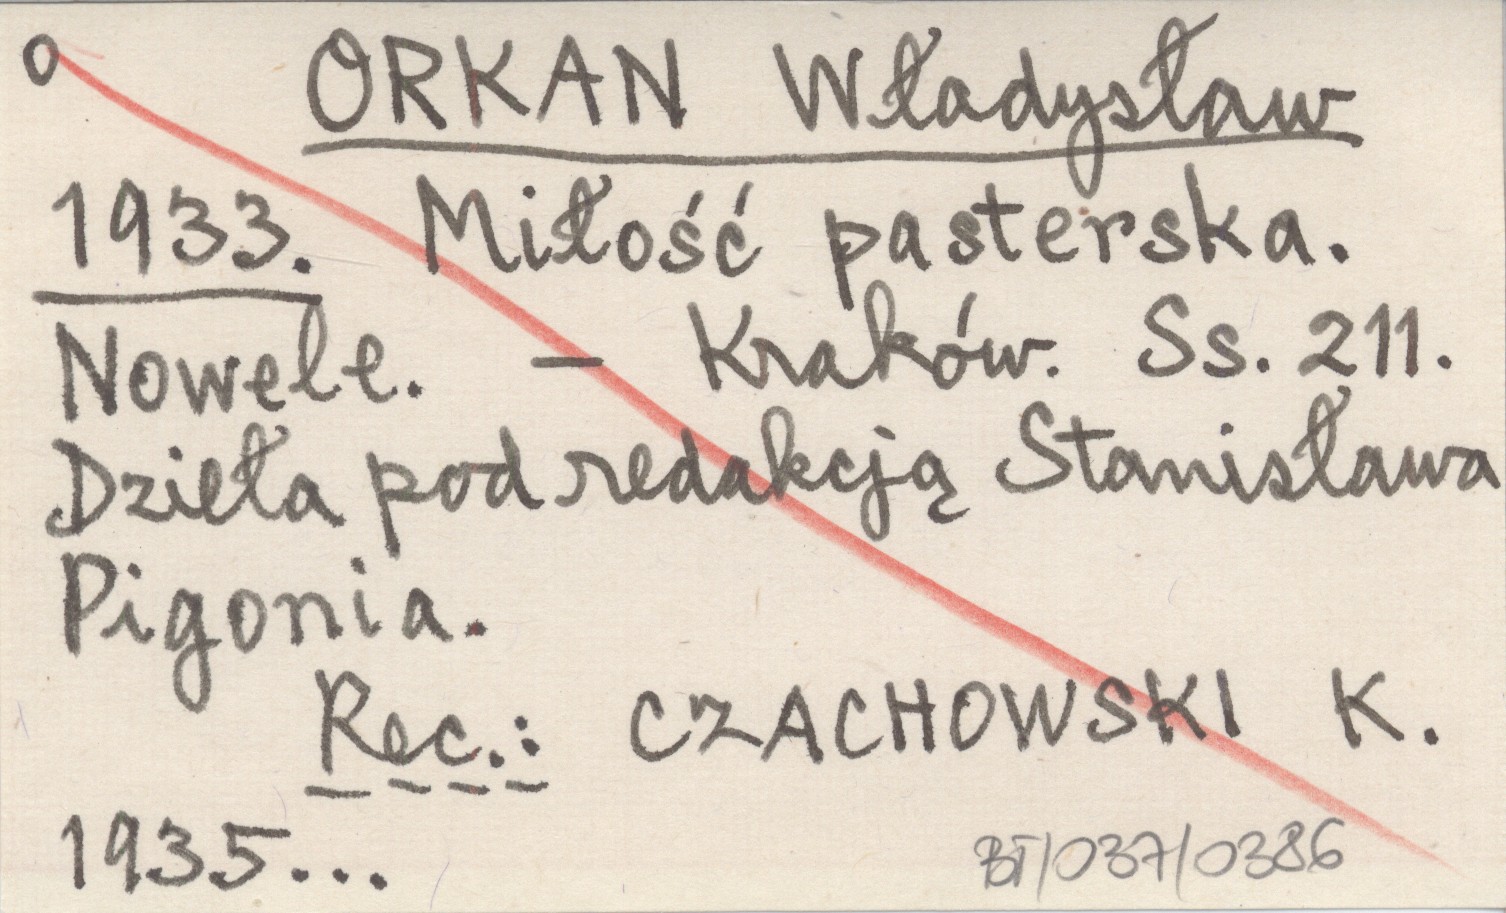 o ORKAN Władysław
1933. Miłość pasterska.
Nowele. – Kraków. Ss. 211.
Dzieła pod redakcją Stanisława
Pigonia.
Rec.: CZACHOWSKI K.
1935...
BT/037/0386